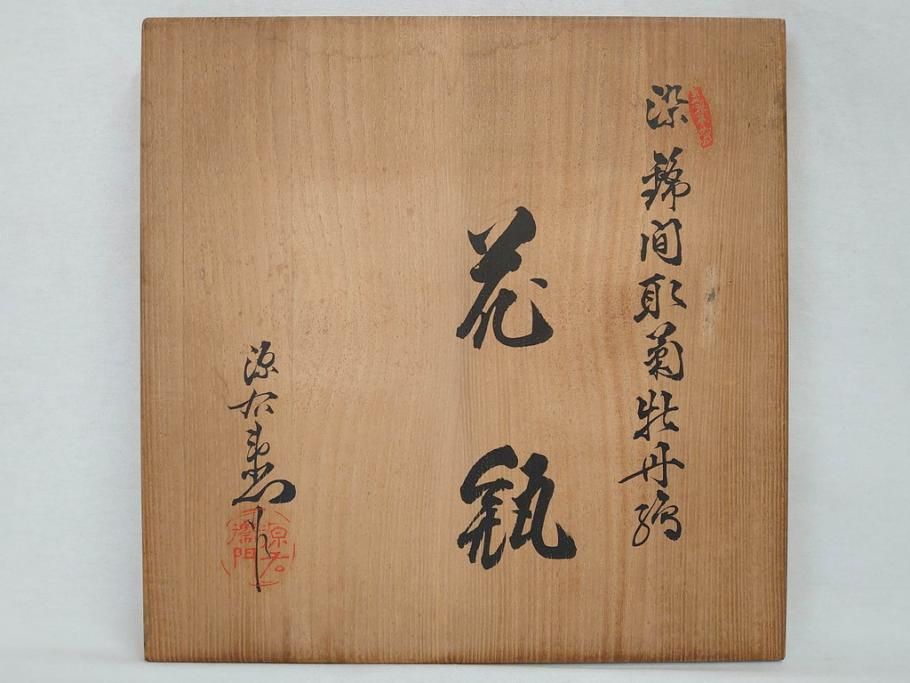 染錦間取菊牡丹絵
花瓶
源右衛門作
源右衛門